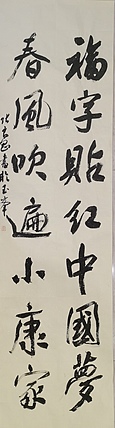 福字貼紅中國夢
春風吹遍小康家